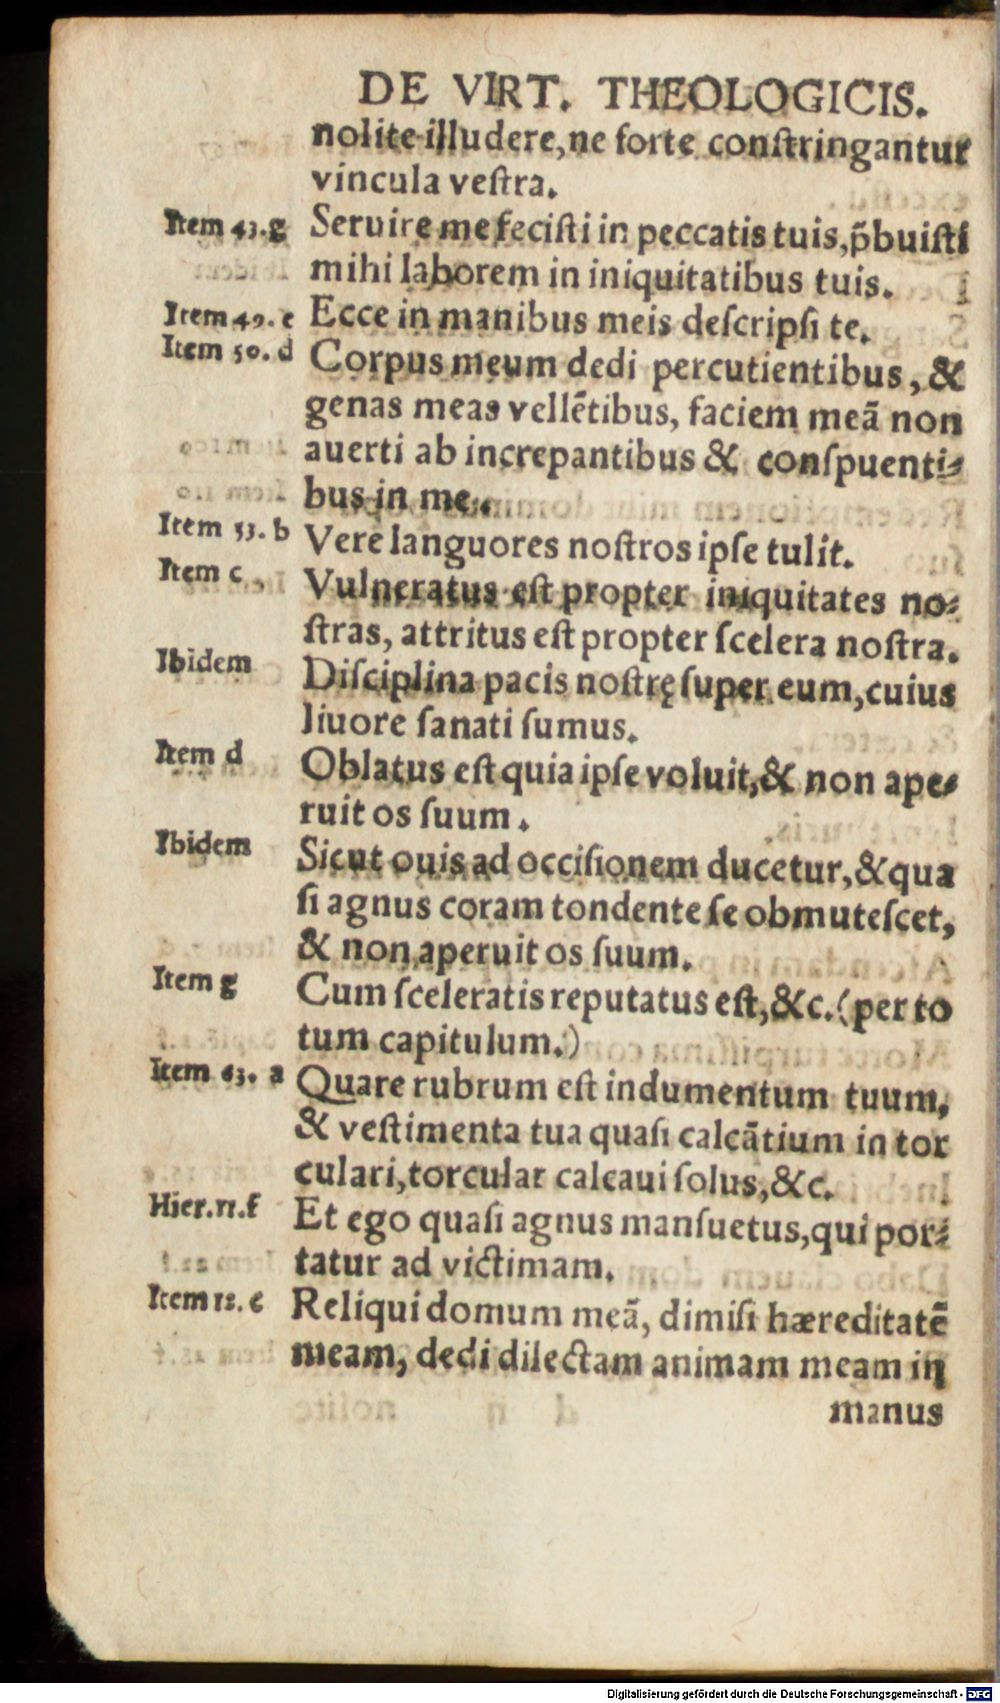 DE VIRT. THEOLOGICIS.
nolite illudere, ne forte conſtringantur
vincula veſtra.
Item 43.g Seruire me feciſti in peccatis tuis, p̃buiſti
mihi laborem in iniquitatibus tuis.
Item 49. e Ecce in manibus meis deſcripſi te.
Item 50. d Corpus meum dedi percutientibus, &
genas meas vellẽtibus, faciem meã non
auerti ab increpantibus & conſpuenti-
bus in me.
Item 53. b Vere languores noſtros ipſe tulit.
Item c Vulneratus eſt propter iniquitates no-
ſtras, attritus eſt propter ſcelera noſtra.
Ibidem Diſciplina pacis noſtrę ſuper eum, cuius
liuore ſanati ſumus.
Item d Oblatus eſt quia ipſe voluit, & non ape-
ruit os ſuum.
Ibidem Sicut ouis ad occiſionem ducetur, & qua
ſi agnus coram tondente ſe obmuteſcet,
& non aperuit os ſuum.
Item g Cum ſceleratis reputatus eſt, &c. (per to
tum capitulum.)
Item 63. a Quare rubrum eſt indumentum tuum,
& veſtimenta tua quaſi calcãtium in tor
culari, torcular calcaui ſolus, &c.
Hier.11.f Et ego quaſi agnus manſuetus, qui por-
tatur ad victimam.
Item 12. e Reliqui domum meã, dimiſi hæreditatẽ
meam, dedi dilectam animam meam in
manus
Digitalisierung gefördert durch die Deutsche Forschungsgemeinschaft - DFG